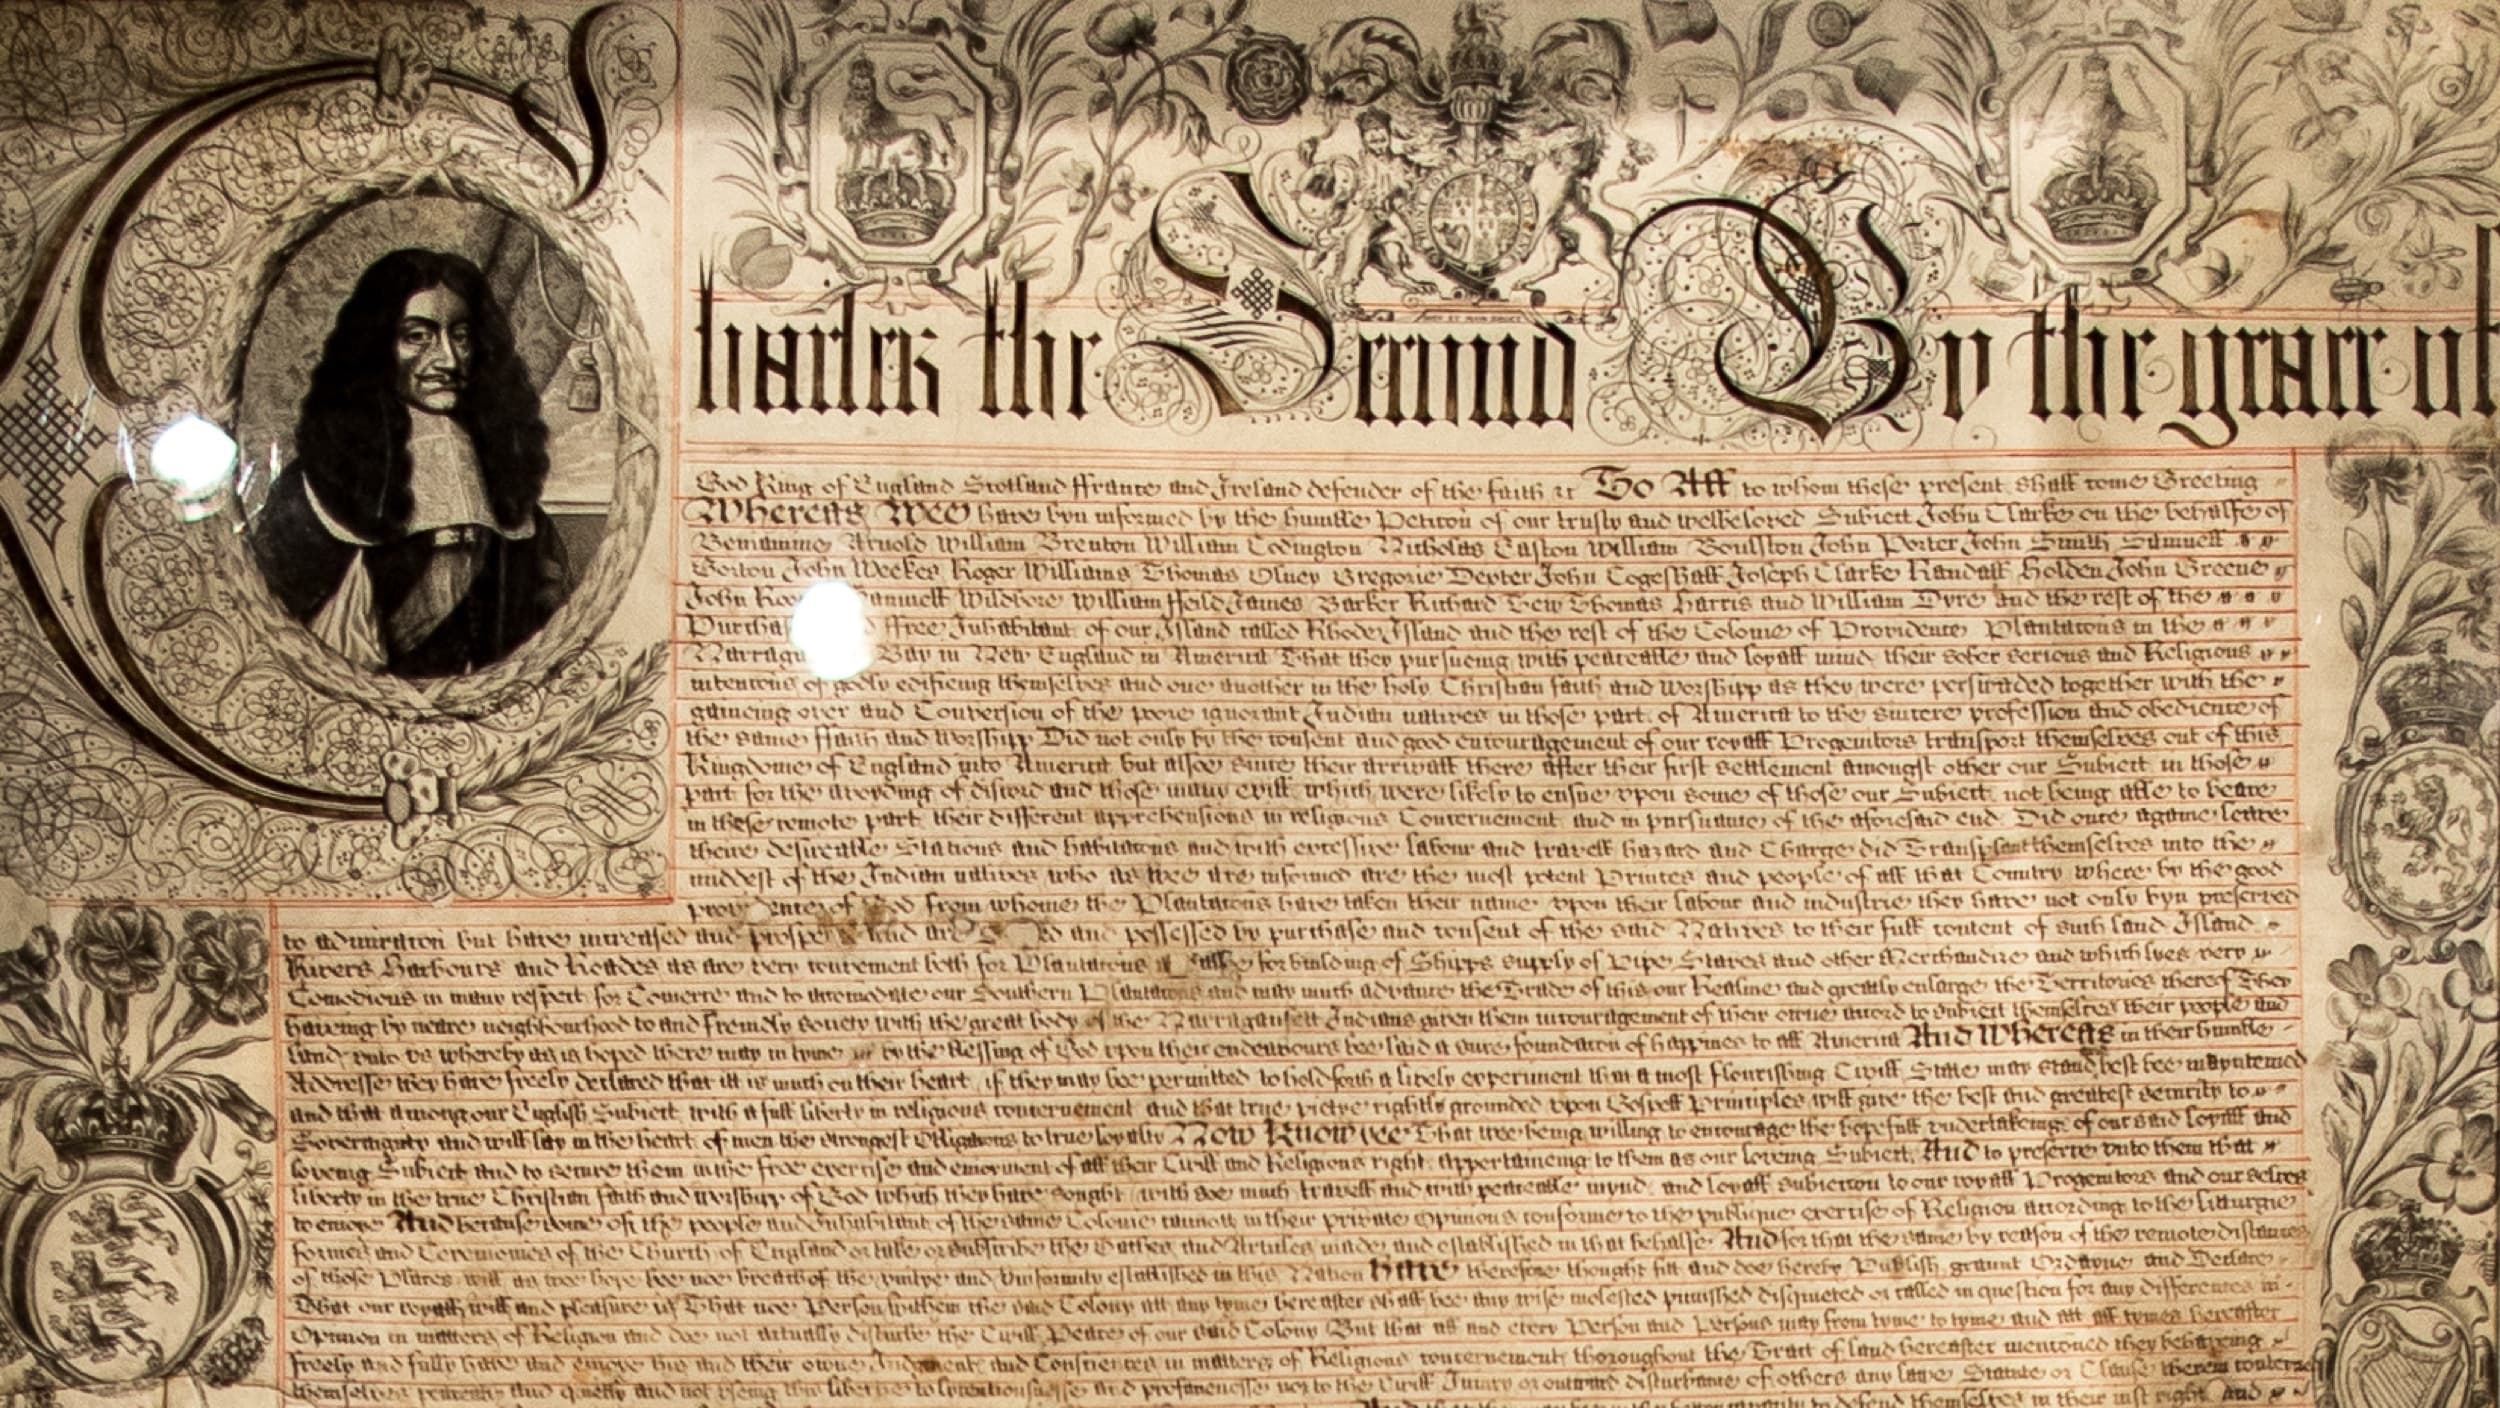 Charles the Second By the grace of
God King of England Scotland ffrance and Ireland defender of the faith &c To All to whome these present shall come Greeting
Whereas Wee have byn informed by the humble Peticon of our trusty and welbeloved Subiect John Clarke on the behalfe of
Beniamine Arnold William Brenton William Codington Nicholas Easton William Boulston John Porter John Smith Samuell
Gorton John Weekes Roger Williams Thomas Olney Gregorie Dexter John Cogeshall Joseph Clarke Randall Holden John Greene
John Samuell Wildbore William ffeild James Barker Richard Tew Thomas Harris and William Dyre and the rest of the
ffree Inhabitant of our Island called Rhode Island and the rest of the Colonie of Providence Plantacons in the
Bay in New England in America That they pursueing with peaceable and loyall mind their sober serious and Religious
intencons of godly edifieing themselves and one another in the holy Christian faith and worshipp as they were perswaded together with the
gaineing over and Conversion of the poore ignorant Indian natives in those part of America to the sincere profession and obedience of
the same ffaith and worshipp Did not only by the consent and good encouragement of our royall Progenitors transport themselves out of this
Kingdome of England into America but alsoe since their arrivall there after their first settlement amongst other our Subiect in those
part for the avoyding of discord and those many evill which were likely to ensue vpon some of those our Subiect not being able to beare
in these remote part their different apprehensions in religious Concernement and in pursuance of the aforesaid end Did once againe leave
their desireable Stations and habitacons and with excessive labour and travell hazard and Charge did Transplant themselves into the
middest of the Indian natives who as wee are informed are the most potent Princes and people of all that Country where by the good
providence of God from whome the Plantacons have taken their name vpon their labour and industrie they have not only byn preserved
to admiracon but have increased and and are and possessed by purchase and consent of the said Natives to their full content of such land Island
Rivers Harbours and Roades as are very convenient both for Plantacons and for building of Shipps supply of Pipe Staves and other Merchandize and which lyes very
Comodious in many respect for Comerce and to accomodate our Southern Plantacons and may much advance the Trade of this our Realme and greatly enlarge the Territories thereof They
having by neare neighbourhood to and friendly society with the great body of the Narragansett Indians given them incouragement of their owne accord to subiect themselves their people and
land vnto vs whereby as is hoped there may in tyme by the blessing of God vpon their endeavours bee laid a sure foundacon of happines to all America And Whereas in their humble
Addresse they have freely declared that itt is much on their heart if they may bee permitted to hold forth a lively experiment that a most flourishing Civill State may stand best bee mayntened
and that among our English Subiect with a full liberty in religious concernement and that true pietye rightly grounded vpon Gospell Principles will give the best and greatest security to
Soveraignty and will lay in the heart of men the strongest Obligacons to true loyalty Now Know yee That wee being willing to encourage the hopefull vndertakeing of our said loyall and
loveing Subiect and to secure them in the free exercise and enioyment of all their Civill and Religious right appertaineing to them as our loveing Subiect And to preserve vnto them that
liberty in the true Christian faith and worshipp of God which they have sought with soe much travell and with peaceable mynd and loyall subiection to our royall Progenitors and our selves
to enioye And because some of the people and Inhabitant of the same Colonie cannott in their private Opinions conforme to the publique exercise of Religion according to the Liturgie
formes and Ceremonies of the Church of England or take or subscribe the Oathes and Articles made and established in that behalfe And for that the same by reason of the remote distances
of those Places will as wee hope bee noe breach of the vnitye and vniformity established in this Nation Have therefore thought fitt and doe hereby Publish graunt Ordayne and Declare
That our royall will and pleasure is That noe Person within the said Colony att any tyme hereafter shall bee any wise molested punished disquieted or called in question for any differences in
Opinion in matters of Religion and doe not actually disturbe the Civill Peace of our said Colony But that all and every Person and Persons may from tyme to tyme and att all tymes hereafter
freely and fully have and enioye his and their owne Judgment and Consciences in matters of Religious concernement thoroughout the Tract of land hereafter mencioned they behaveing
themselves peaceably and quietly and not useing this libertie to lycentiousnesse and profanenesse nor to the Civill Iniury or outward disturbance of others any lawe Statute or Clause therein
defend themselves in their iust right and